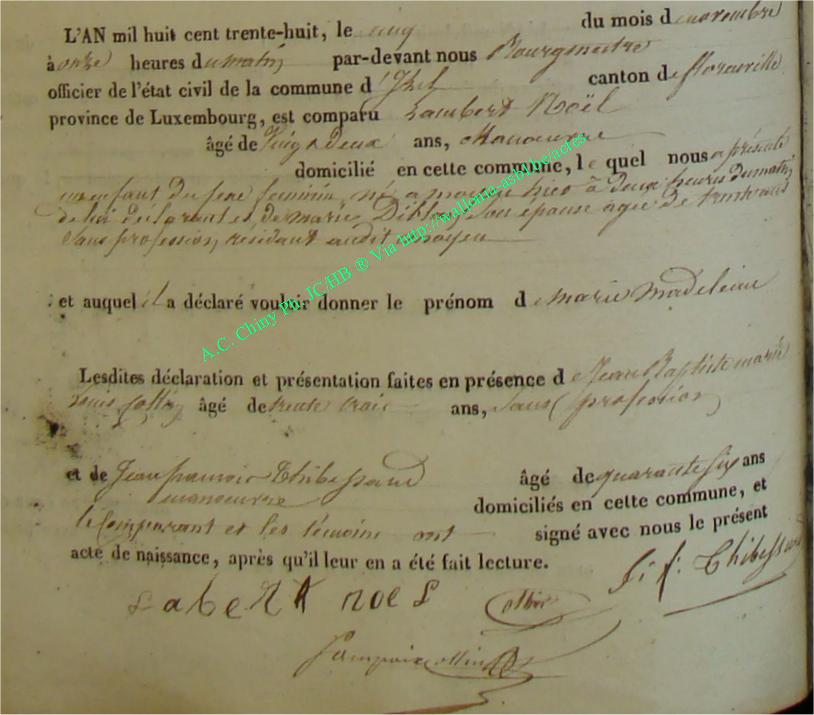 L'AN mil huit cent trente-huit, le cinq du mois d e novembre
à onze heures du matin par-devant nous Bourgmestre
officier de l'état civil de la commune d' Izel canton de florenville
province de Luxembourg, est comparu Lambert Noël
âgé de vingt deux ans, Manoeuvre
domicilié en cette commune, le quel nous a présenté
un enfant du sexe feminin, né a moyen hier à deux heures du matin,
de lui déclarant et de marie son épouse agée de
sans profession, résidant audit moyen
et auquel il a déclaré vouloir donner le prénom de marie madeleine
Lesdites déclaration et présentation faites en présence de Jean Baptiste marie
louis Collin âgé de trente trois ans, sans profession
et de Jean françois Thibessard âgé de quarante six ans
manoeuvre domiciliés en cette commune, et
le Comparant et les témoins ont signé avec nous le présent
acte de naissance, après qu'il leur en a été fait lecture.
J. f. Thibessard
Labert noel Collin
A.C. Chiny Ph. JC/HB ® Via http://wallonia-asbl.be/actes